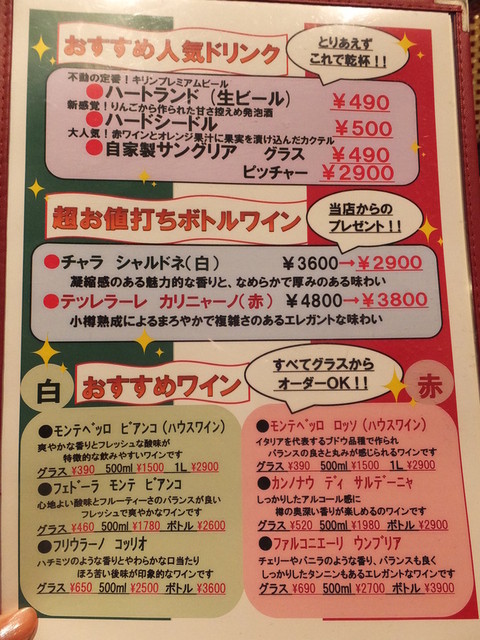 おすすめ人気ドリンク
とりあえず
これで乾杯!!
不動の定番!キリンプレミアムビール
●ハートランド(生ビール) ¥490
新感覚!りんごから作られた甘さ控えめ発泡酒
●ハードシードル ¥500
大人気!赤ワインとオレンジ果汁に果実を漬け込んだカクテル
●自家製サングリア グラス ¥490
ピッチャー ¥2900
超お値打ちボトルワイン
当店からの
プレゼント!!
●チャラ シャルドネ(白) ¥3600→¥2900
凝縮感のある魅力的な香りと、なめらかで厚みのある味わい
●テッレラーレ カリニャーノ(赤) ¥4800→¥3800
小樽熟成によるまろやかで複雑さのあるエレガントな味わい
白
おすすめワイン
すべてグラスから
オーダーOK!!
赤
●モンテベッロ ビアンコ(ハウスワイン)
爽やかな香りとフレッシュな酸味が
特徴的な飲みやすいワインです
グラス ¥390 500ml ¥1500 1L ¥2900
●フェドーラ モンテ ビアンコ
心地よい酸味とフルーティーさのバランスが良い
フレッシュで爽やかなワインです
グラス ¥460 500ml ¥1780 ボトル ¥2600
●フリウラーノ コッリオ
ハチミツのような香りとやわらかな口当たり
ほろ苦い後味が印象的なワインです
グラス ¥650 500ml ¥2500 ボトル ¥3600
●モンテベッロ ロッソ(ハウスワイン)
イタリアを代表するブドウ品種で作られ
バランスの良さと丸みが感じられるワインです
グラス ¥390 500ml ¥1500 1L ¥2900
●カンノナウ ディ サルデーニャ
しっかりしたアルコール感に
樽の奥深い香りが楽しめるのワインです
グラス ¥520 500ml ¥1980 ボトル ¥2900
●ファルコニエーリ ウンブリア
チェリーやバニラのような香り、バランスも良く
しっかりしたタンニンもあるエレガントなワインです
グラス ¥690 500ml ¥2700 ボトル ¥3900